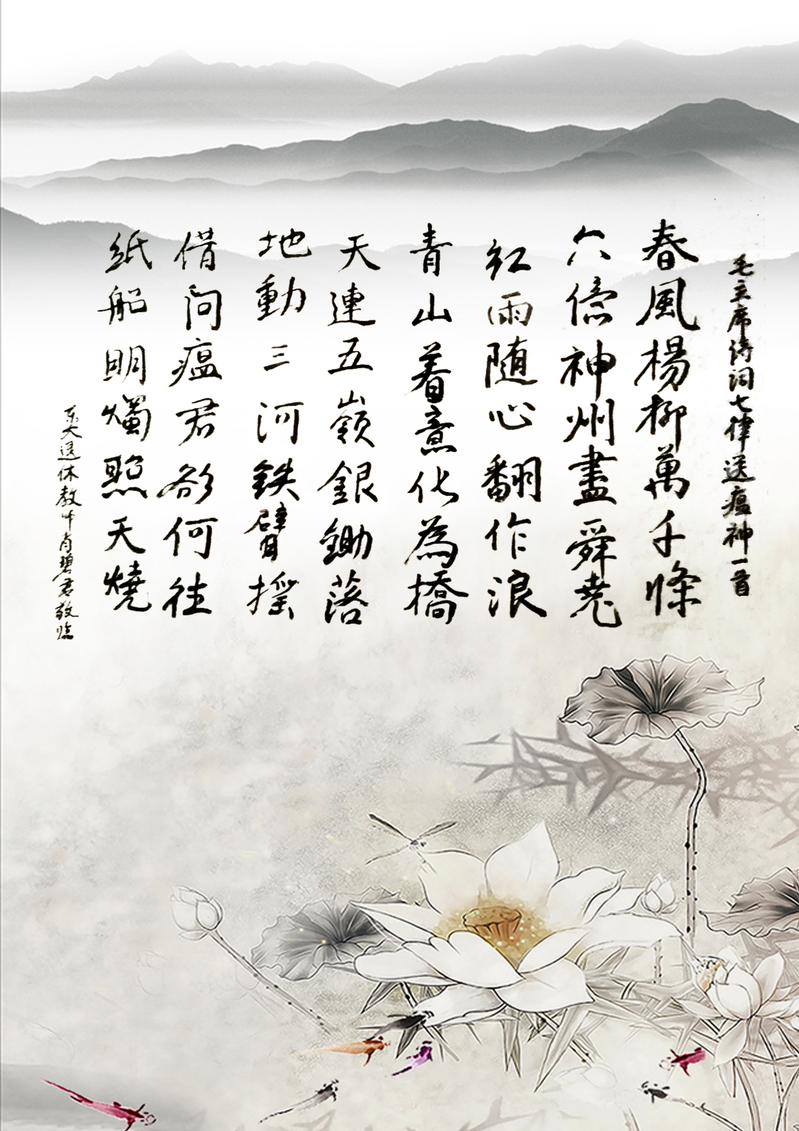 毛主席诗词七律送瘟神一首
春風楊柳萬千條
六億神州盡舜堯
紅雨随心翻作浪
青山着意化為橋
天連五嶺銀鋤落
地動三河鉄臂摇
借问瘟君欲何往
紙船明燭照天燒
东大退休教师肖碧君敬临